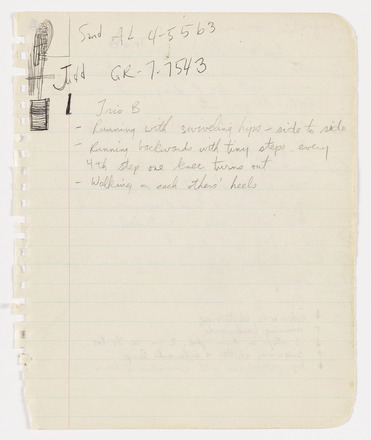 Sand AL 4-5563
Judd GR-7-7543
Trio B
- Running with swiveling hips - side to side
- Running backwards with tiny steps every
4th step one knee turns out
- Walking on each others' heels